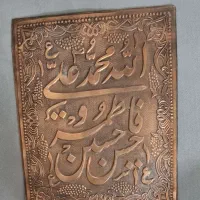 الله محمد علی
فاطمه و
حسن حسین